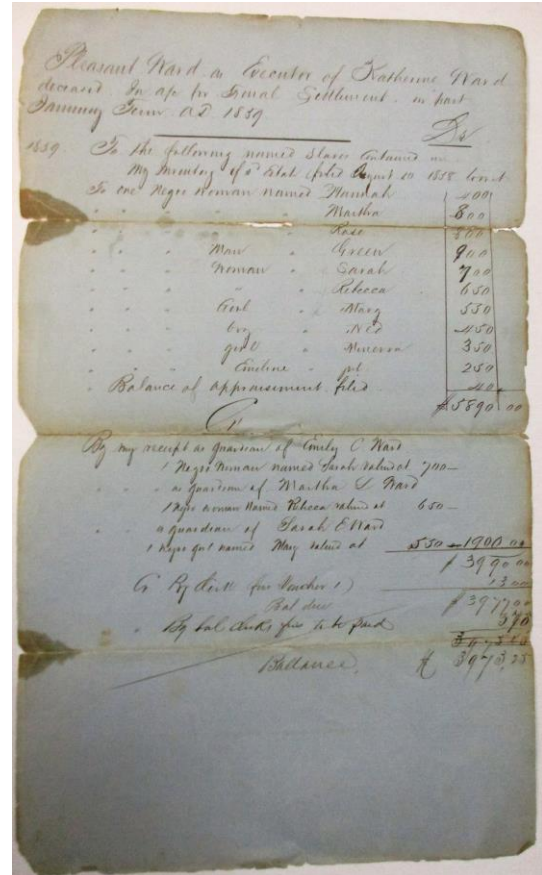 Pleasant Ward as Executor of Katherine Ward
deceased In a/c for Final Settlement in part
January Term AD 1859
Dr
1859. To the following named Slaves Contained in
My Inventory of s Estate filed August 10 1858 to wit
To one Negro woman named Hannah 400
" " " " " Martha 800
" " " " " Rose 800
" " " Man " Green 900
" " " Woman " Sarah 700
" " " " " Rebecca 650
" " " Girl " Mary 550
" " " boy " Ned 450
" " " girl " Minerva 350
" " " Emeline 250
" Balance of appraisement filed 40
$5890 00
Cr
By my receipt as guardian of Emily C Ward
1 Negro Woman named Sarah valued at 700—
" " as guardian of Martha S Ward
1 Negro woman Named Rebecca valued at 650—
a guardian of Sarah E Ward
1 Negro girl named Mary valued at 550 — 1900 00
$ 3990 00
Cr By Clerk fees Voucher 1) 13 00
Bal due $ 3977 00
" By bal clerks fees to be paid 370
3973 25
Ballance, $ 3973,25